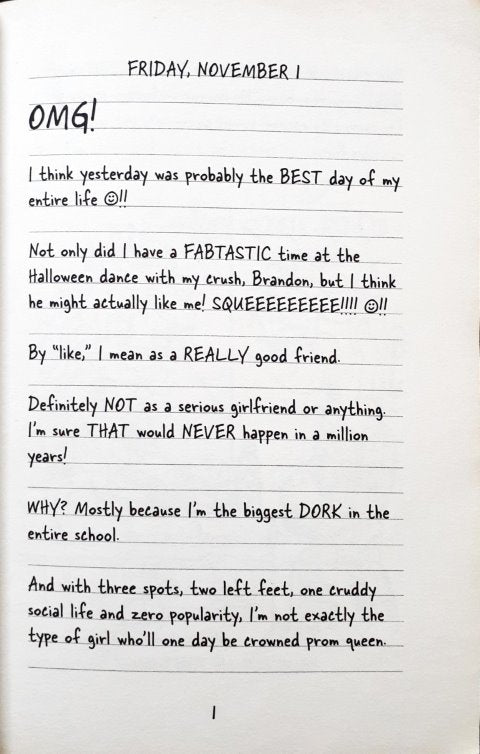 FRIDAY, NOVEMBER 1
OMG!
I think yesterday was probably the BEST day of my
entire life ☺!!
Not only did I have a FABTASTIC time at the
Halloween dance with my crush, Brandon, but I think
he might actually like me! SQUEEEEEEEEE!!!! ☺!!
By “like,” I mean as a REALLY good friend.
Definitely NOT as a serious girlfriend or anything.
I’m sure THAT would NEVER happen in a million
years!
WHY? Mostly because I’m the biggest DORK in the
entire school.
And with three spots, two left feet, one cruddy
social life and zero popularity, I’m not exactly the
type of girl who’ll one day be crowned prom queen.
1